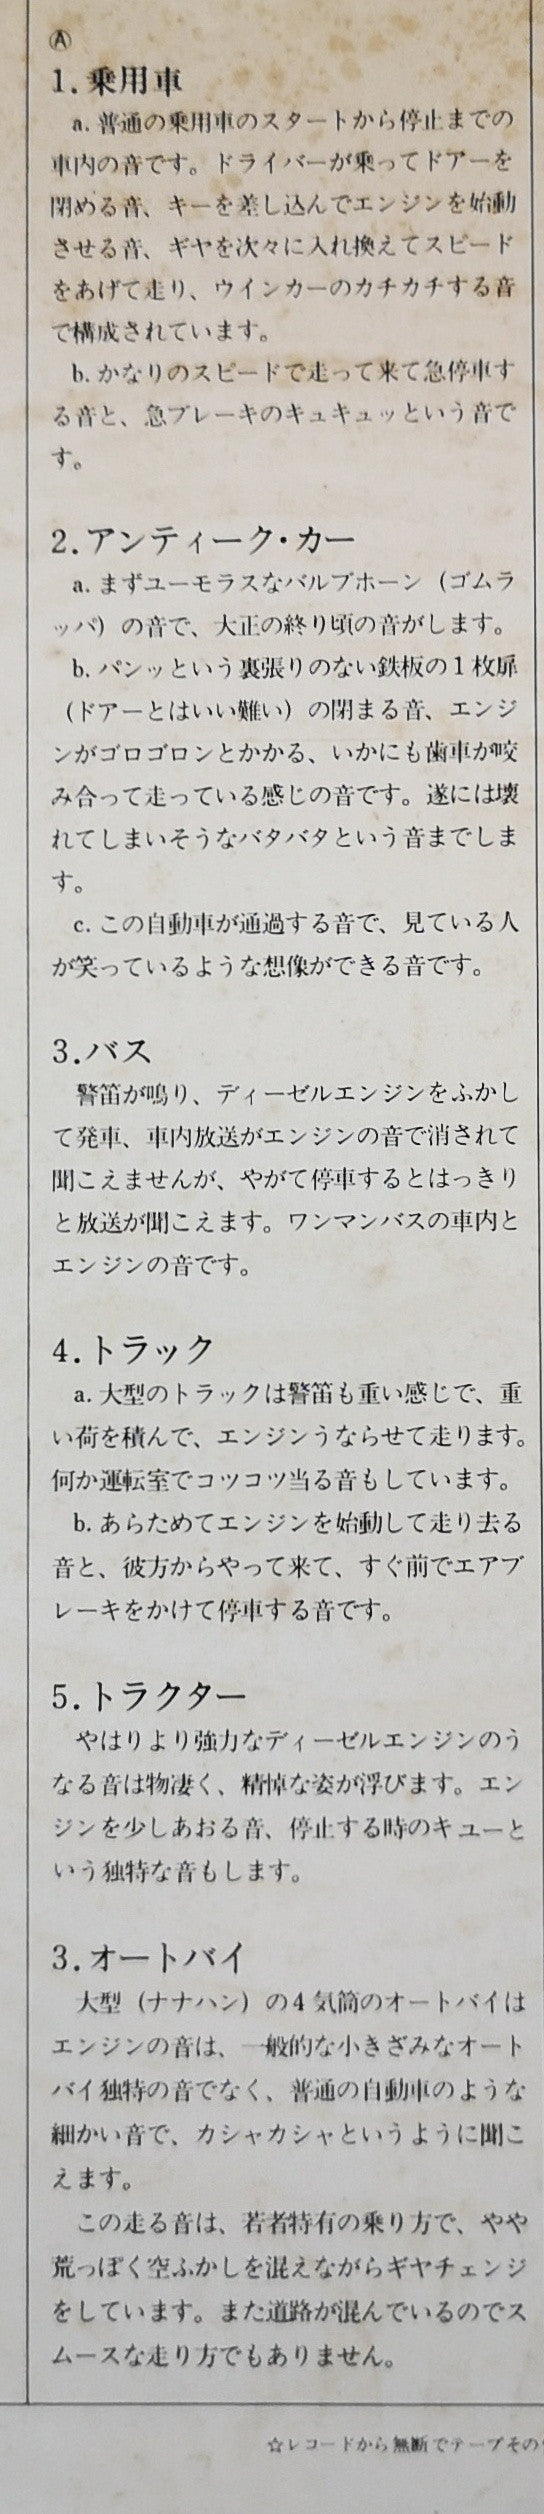 Ⓐ
1.乗用車
a. 普通の乗用車のスタートから停止までの
車内の音です。ドライバーが乗ってドアーを
閉める音、キーを差し込んでエンジンを始動
させる音、ギヤを次々に入れ換えてスピード
をあげて走り、ウインカーのカチカチする音
で構成されています。
b. かなりのスピードで走って来て急停車す
る音と、急ブレーキのキュキュッという音で
す。
2.アンティーク・カー
a. まずユーモラスなバルブホーン（ゴムラ
ッパ）の音で、大正の終り頃の音がします。
b. バンッという裏張りのない鉄板の1枚扉
（ドアーとはいい難い）の閉まる音、エンジ
ンがゴロゴロンとかかる、いかにも歯車が咬
み合って走っている感じの音です。遂には壊
れてしまいそうなバタバタという音までしま
す。
c. この自動車が通過する音で、見ている人
が笑っているような想像ができる音です。
3.バス
警笛が鳴り、ディーゼルエンジンをふかし
て発車、車内放送がエンジンの音で消されて
聞こえませんが、やがて停車するとはっきり
と放送が聞こえます。ワンマンバスの車内と
エンジンの音です。
4.トラック
a. 大型のトラックは警笛も重い感じで、重
い荷を積んで、エンジンうならせて走ります。
何か運転室でコツコツ当る音もしています。
b. あらためてエンジンを始動して走り去る
音と、彼方からやって来て、すぐ前でエアブ
レーキをかけて停車する音です。
5.トラクター
やはりより強力なディーゼルエンジンのう
なる音は物凄く、精悼な姿が浮びます。エン
ジンを少しあおる音、停止する時のキューと
いう独特な音もします。
3.オートバイ
大型（ナナハン）の4気筒のオートバイは
エンジンの音は、一般的な小きざみなオート
バイ独特の音でなく、普通の自動車のような
細かい音で、カシャカシャというように聞こ
えます。
この走る音は、若者特有の乗り方で、やや
荒っぽく空ふかしを混えながらギヤチェンジ
をしています。また道路が混んでいるのでス
ムースな走り方でもありません。
☆レコードから無断でテープその